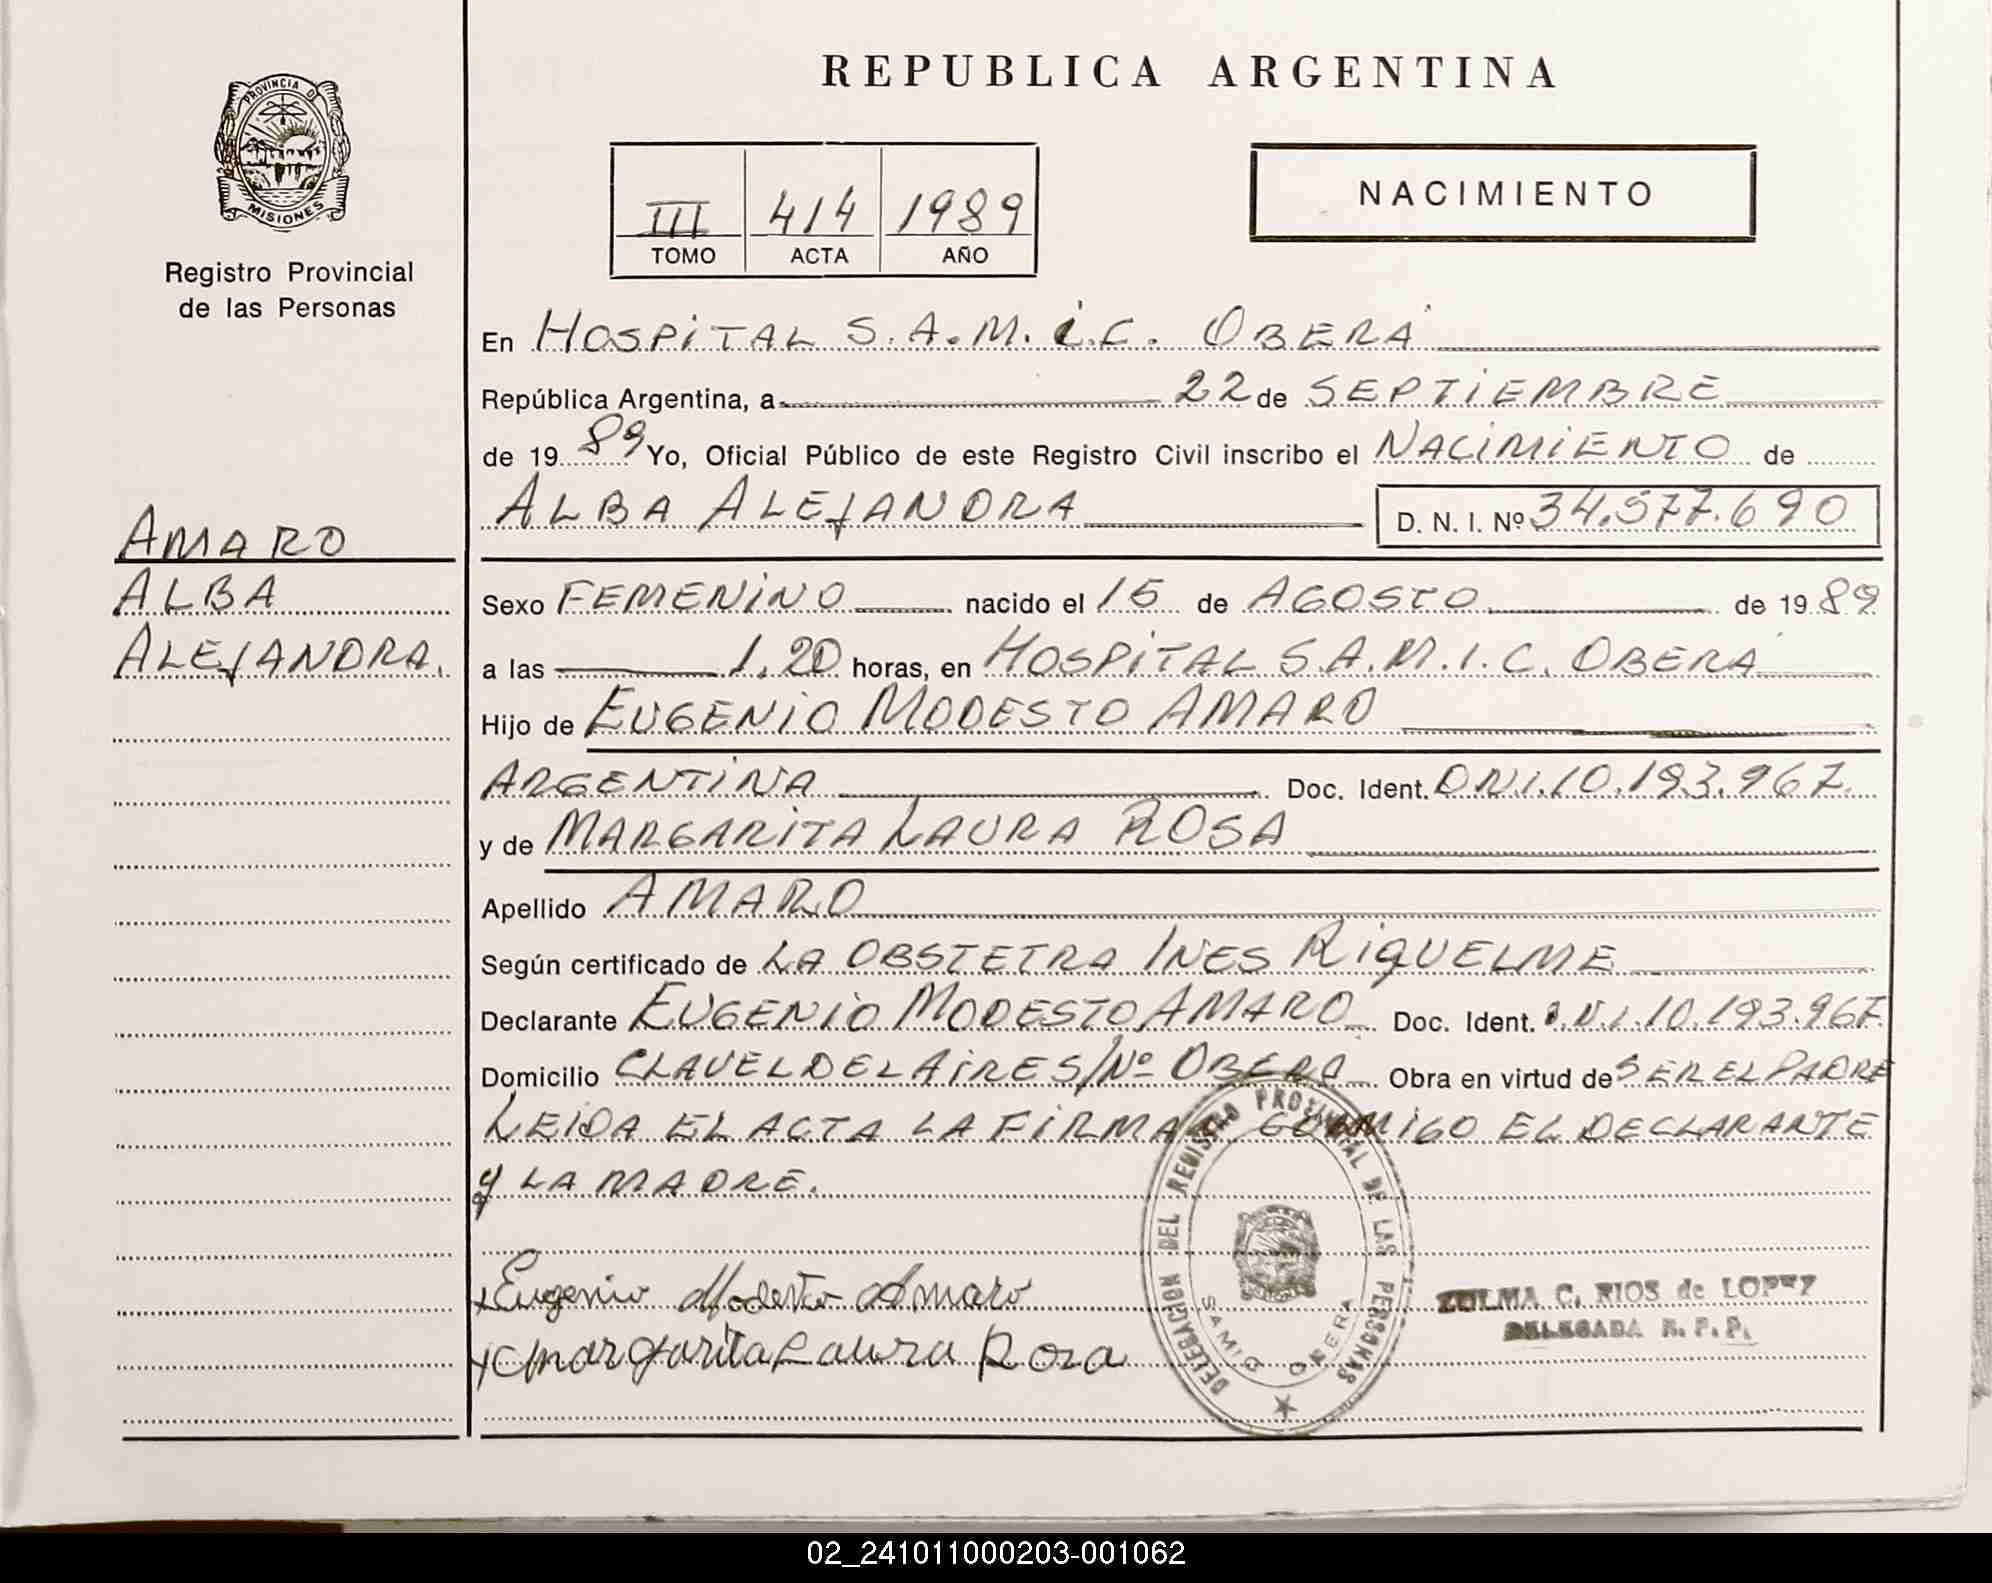 REPUBLICA ARGENTINA
PROVINCIA D
MISIONES
Registro Provincial
de las Personas
III 414 1989
TOMO ACTA AÑO
NACIMIENTO
En HOSPITAL S.A.M.I.C. OBERÁ
República Argentina, a 22 de SEPTIEMBRE
de 19 89 Yo, Oficial Público de este Registro Civil inscribo el NACIMIENTO de
ALBA ALEJANDRA D. N. I. Nº 34.577.690
AMARO
ALBA
ALEJANDRA.
Sexo FEMENINO nacido el 15 de AGOSTO de 19 89
a las 1.20 horas, en HOSPITAL S.A.M.I.C. OBERÁ
Hijo de EUGENIO MODESTO AMARO
ARGENTINA Doc. Ident. D.N.I. 10.193.967
y de MARGARITA LAURA ROSA
Apellido AMARO
Según certificado de LA OBSTETRA INES RIQUELME
Declarante EUGENIO MODESTO AMARO Doc. Ident. D.N.I. 10.193.967
Domicilio CLAVEL DEL AIRE S/Nº OBERÁ Obra en virtud de SER EL PADRE
LEIDA EL ACTA LA FIRMAN CONMIGO EL DECLARANTE
Y LA MADRE.
x Eugenio Modesto Amaro
x Margarita Laura Rosa
DELEGACION DEL REGISTRO PROVINCIAL DE LAS PERSONAS
SAMIC OBERA
ZULMA C. RIOS de LOPEZ
DELEGADA R. P. P.
02_241011000203-001062